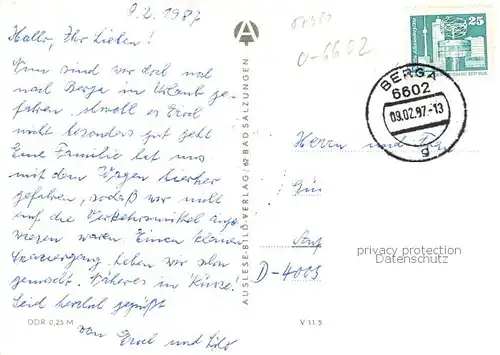 9.2.1987
Hallo, Ihr Lieben!
Nun sind wir doch noch
nach Berga in Urlaub ge-
fahren, obwohl es Erol
nicht besonders gut geht.
Eine Familie hat uns
mit dem Wagen hierher
gefahren, sodaß wir nicht
auf die Verkehrsmittel ange-
wiesen waren. Einen kleinen
Spaziergang haben wir schon
gemacht. Näheres in Kürze!
Seid herzlich gegrüßt
von Erol und
DDR 0,25 M
AUSLESE-BILD-VERLAG/62 BAD SALZUNGEN
A
V 11/5
O-6602
25
BERGA
6602
09.02.87.-13
g
Herrn und
privacy protection
Datenschutz
D-4003